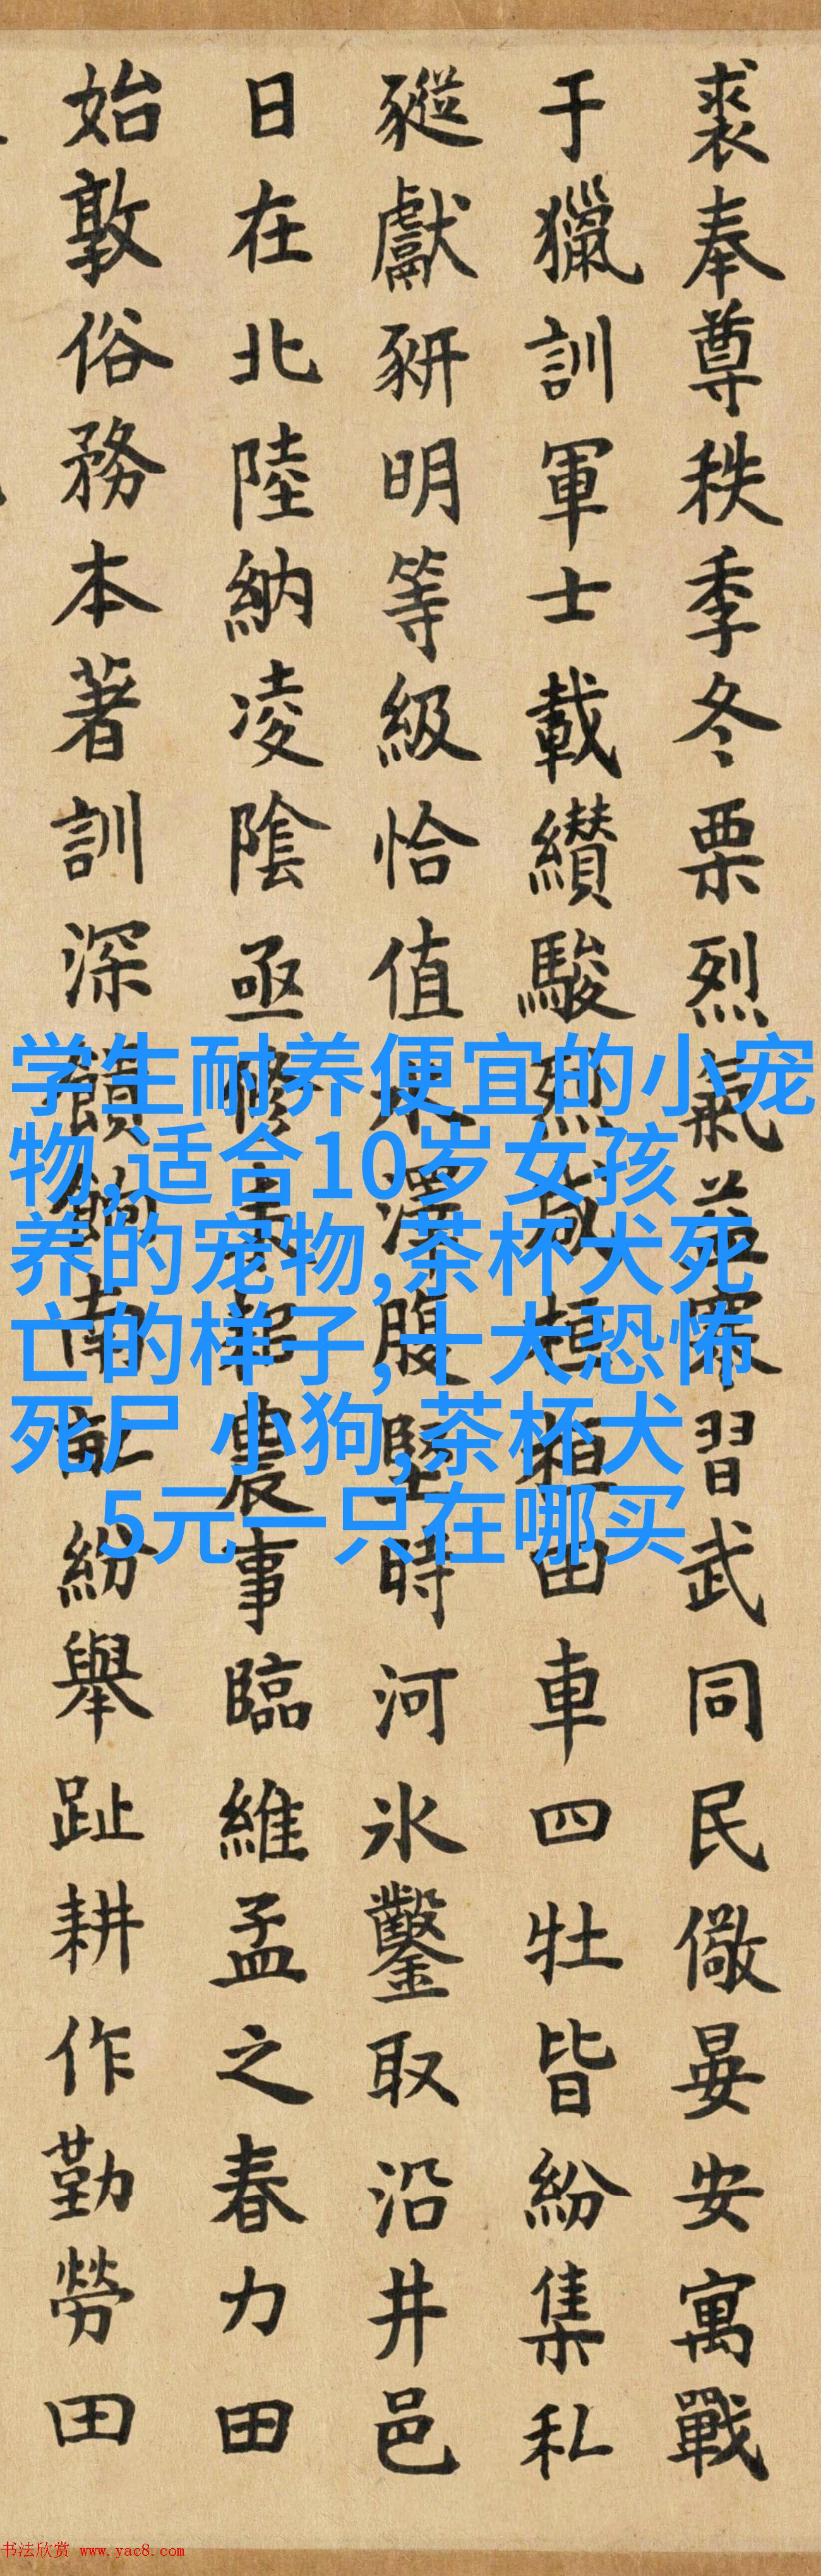 裘奉尊秩季冬栗烈氣益寒習武同民儆晏安寓戰
于獵訓軍士載纘駿烈咸桓桓田車四牡皆紛集私
豵獻豜明等級恰值水澤腹堅時河冰鑿取沿井邑
日在北陸納凌陰亟修耒耜農事臨維孟之春力田
始敦俗務本著訓深饋餉南畝紛舉趾耕作勤勞田
学生耐养便宜的小宠
物,适合10岁女孩
养的宠物,茶杯犬死
亡的样子,十大恐怖
死尸 小狗,茶杯犬
5元一只在哪买
书法欣赏 www.yac8.com